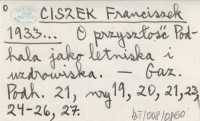 CISZEK Franciszek
1933... O przyszłość Pod-
hala jako letniska i
uzdrowiska. — Gaz.
Podh. 21, nry 19, 20, 21, 23,
24-26, 27.